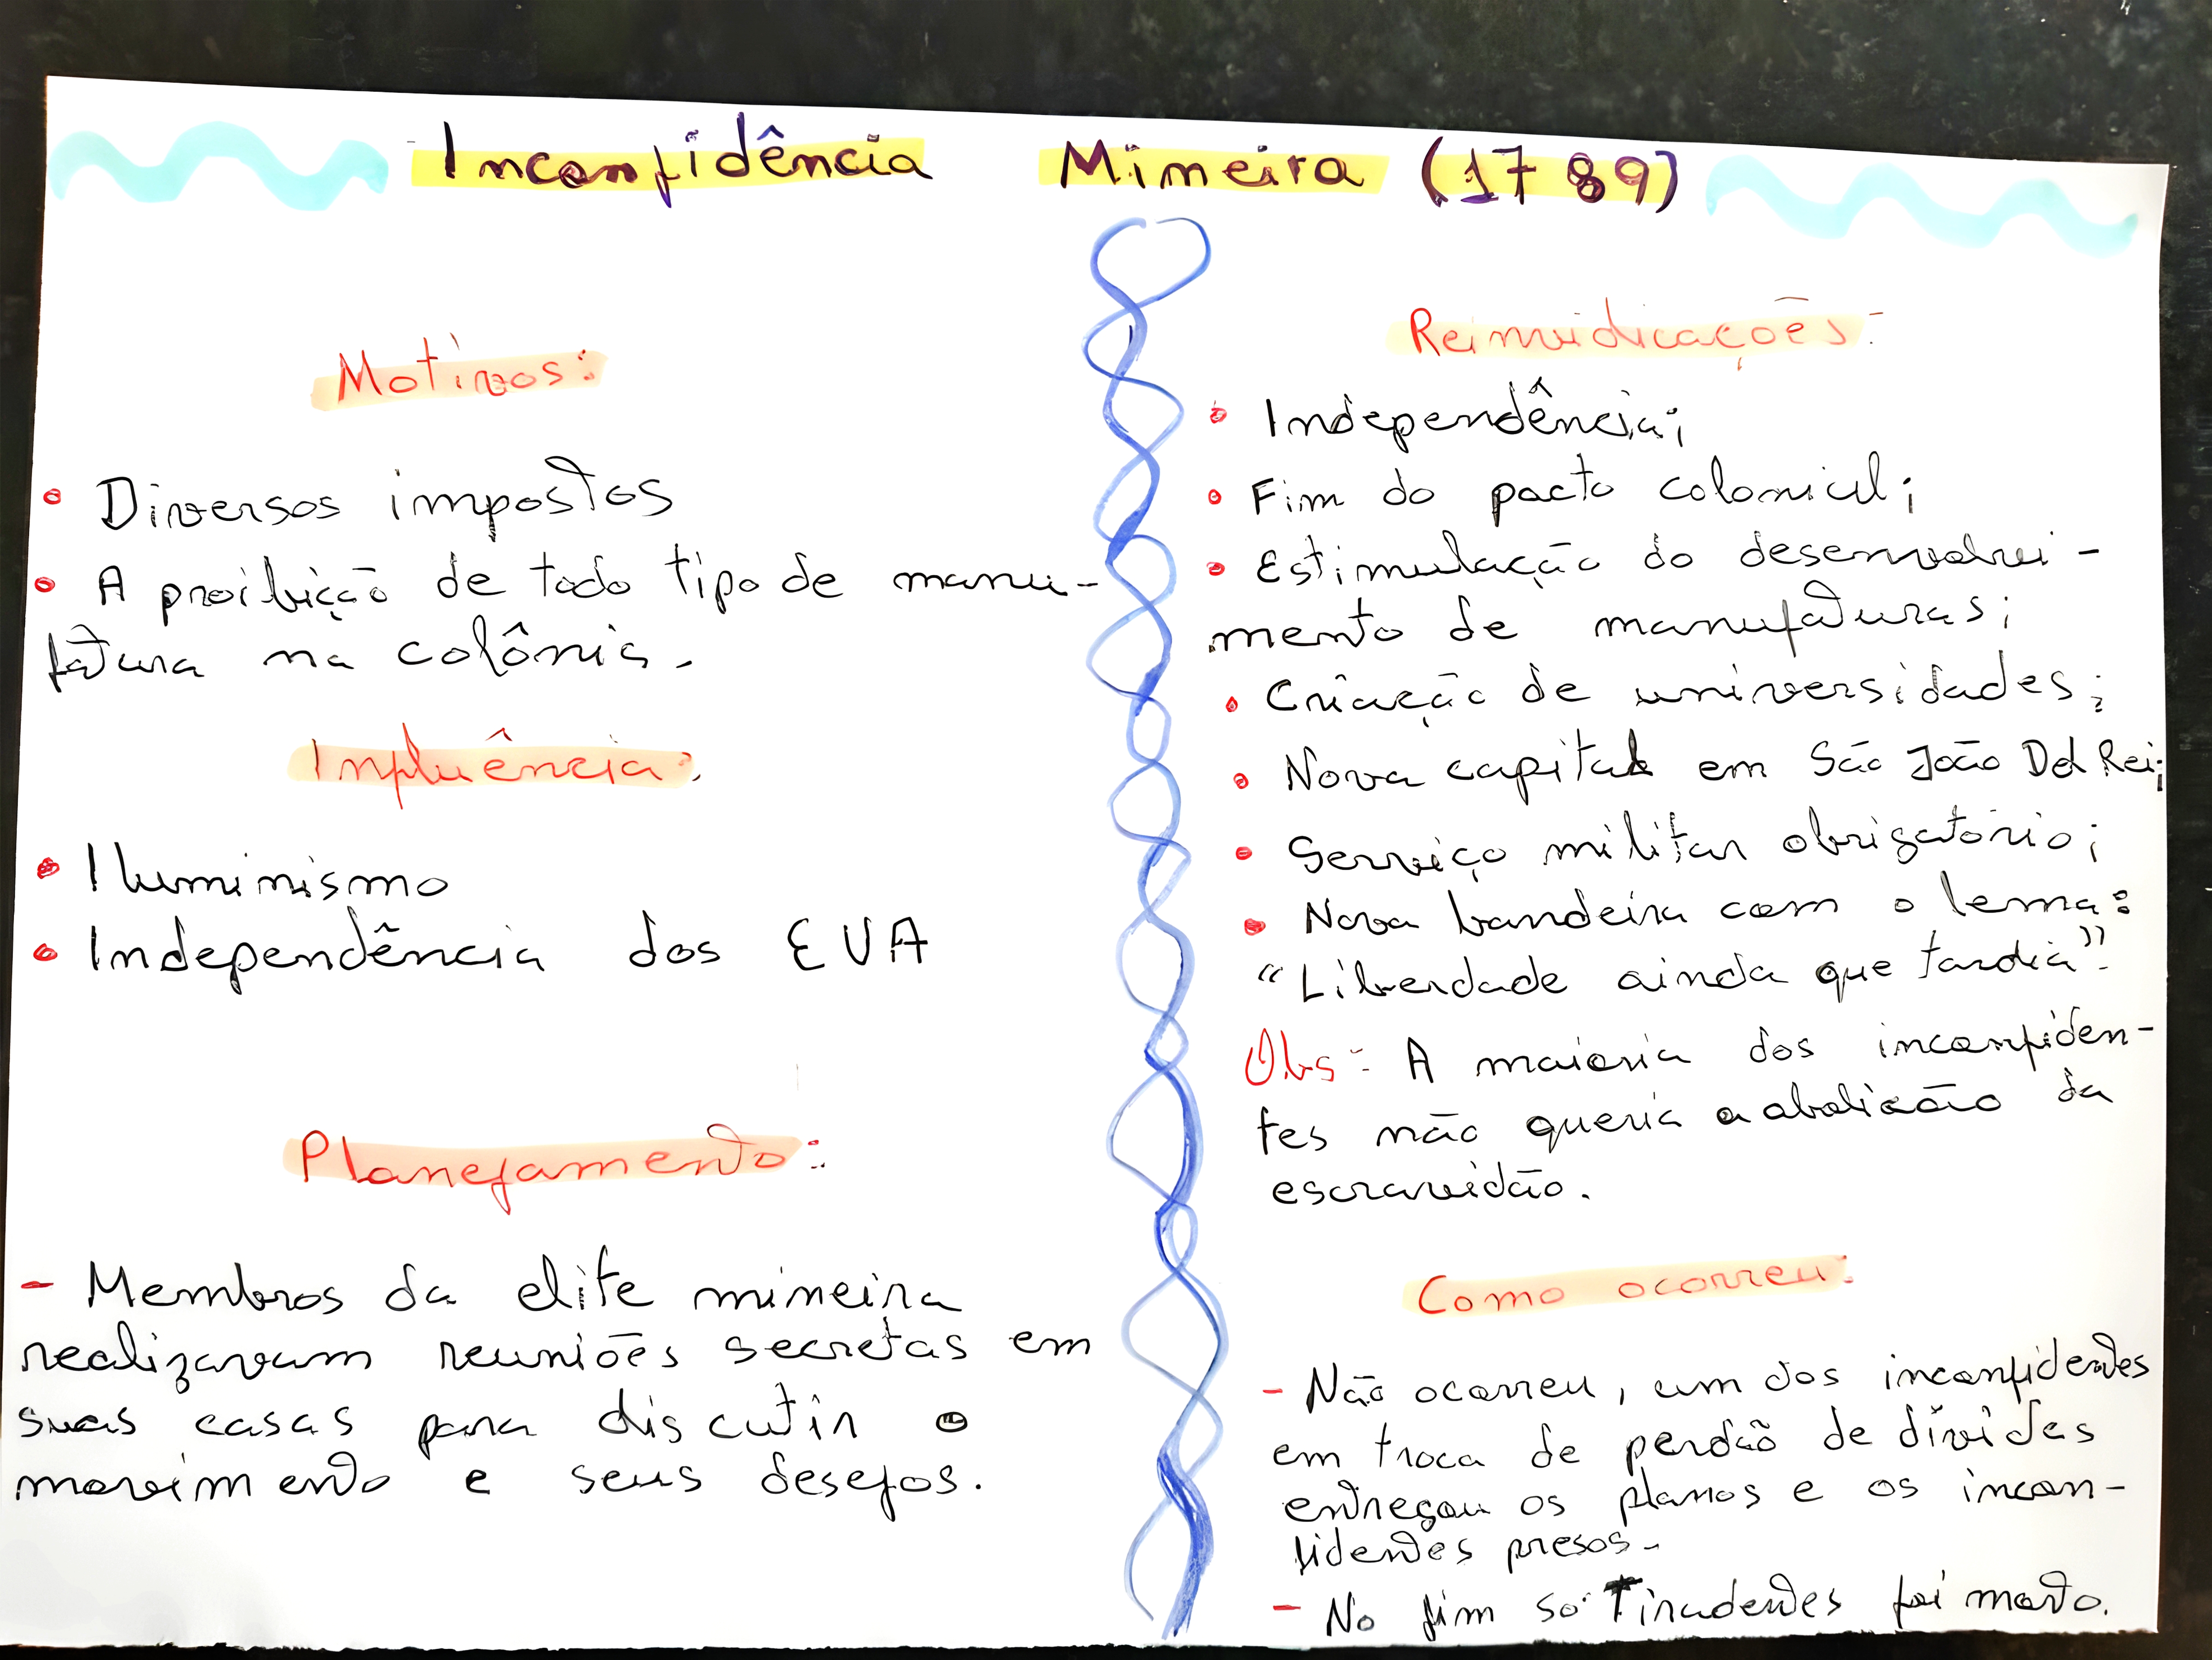 Inconfidência Mineira (1789)
Motivos:
• Diversos impostos
• A proibição de todo tipo de manu-
fatura na colônia.
Influência:
• Iluminismo
• Independência dos EUA
Planejamento:
- Membros da elite mineira
realizavam reuniões secretas em
suas casas para discutir o
movimento e seus desejos.
Reinvidicações:
• Independência;
• Fim do pacto colonial;
• Estimulação do desenvolvi-
mento de manufaturas;
• Criação de universidades;
• Nova capital em São João Del Rei;
• Serviço militar obrigatório;
• Nova bandeira com o lema:
"Liberdade ainda que tardia".
Obs: A maioria dos inconfiden-
tes não queria a abolição da
escravidão.
Como ocorreu:
- Não ocorreu, um dos inconfidentes
em troca de perdão de dívidas
entregou os planos e os incon-
fidentes presos.
- No fim só Tiradentes foi morto.